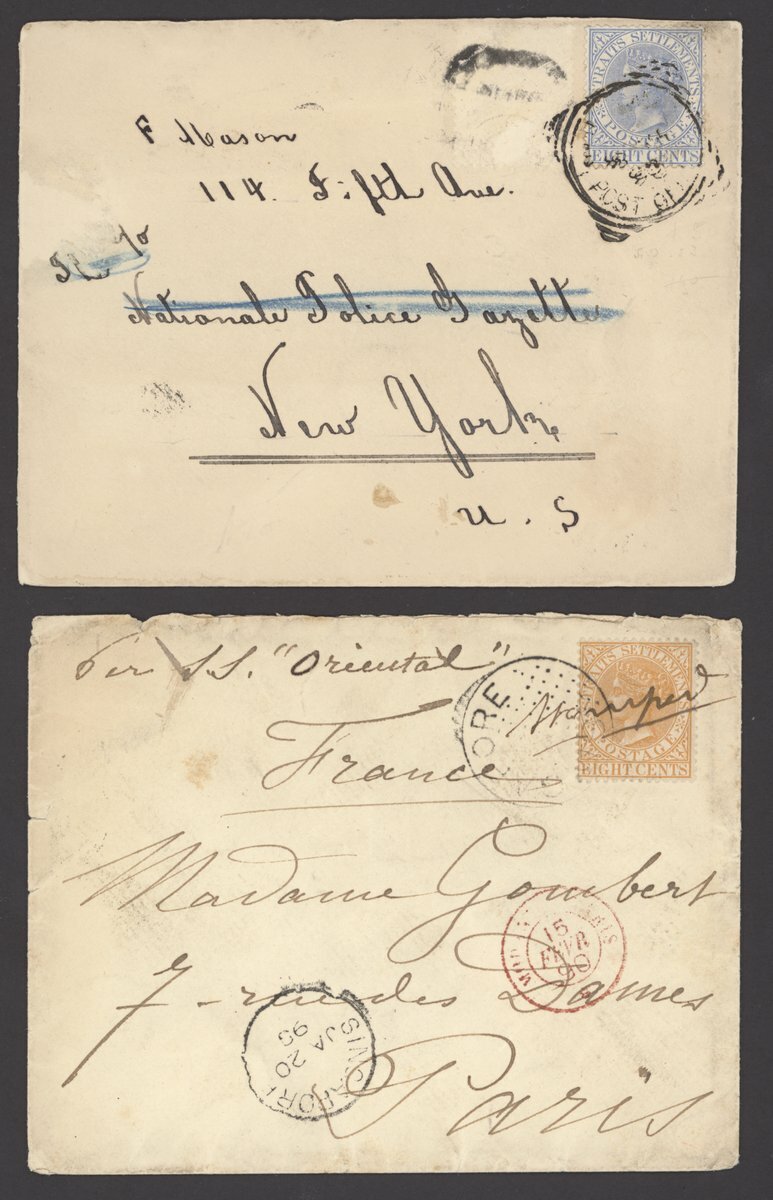 STRAITS SETTLEMENTS
POSTAGE
EIGHT CENTS
POST OF
F Mason
114. Fifth Ave.
Nationale Police Gazette
New York
U. S
Per S.S. "Oriental"
ORE
Stamped
STRAITS SETTLEMENTS
POSTAGE
EIGHT CENTS
France
Madame Gombert
15
FEVR
90
7 - rue des Dames
SINGAPORE
JA 20
90
Paris